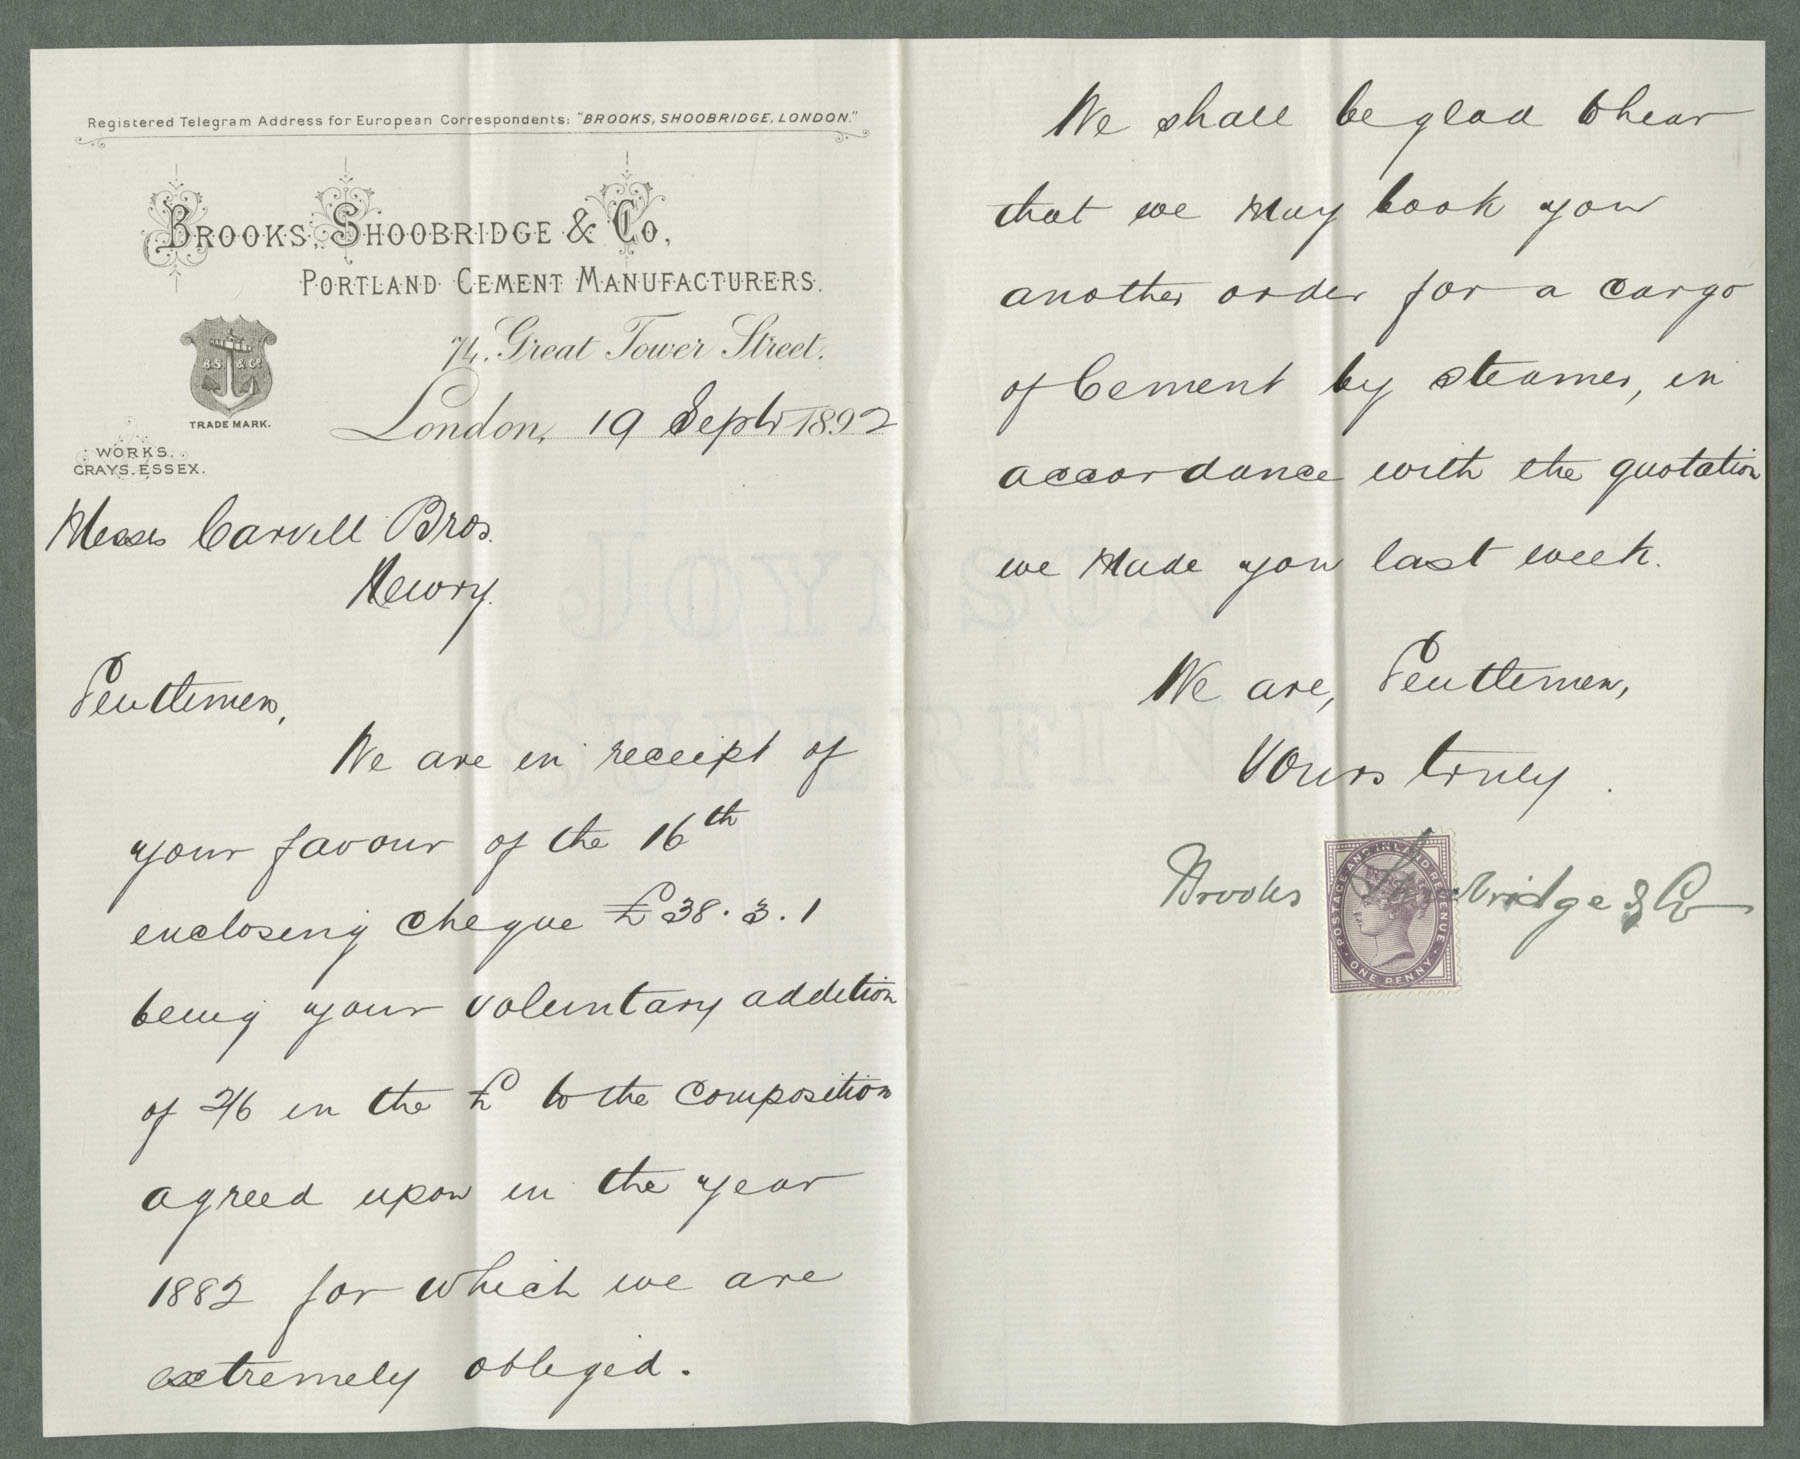 Registered Telegram Address for European Correspondents: "BROOKS, SHOOBRIDGE, LONDON."
BROOKS, SHOOBRIDGE & CO,
PORTLAND CEMENT MANUFACTURERS.
74, Great Tower Street.
B.S. & Co.
TRADE MARK.
London, 19 Septr 1892
WORKS.
GRAYS. ESSEX.
Messrs Carvill Bros.
Newry.
Gentlemen,
We are in receipt of
your favour of the 16th
enclosing cheque £38.3.1
being your voluntary addition
of 2/6 in the £ to the composition
agreed upon in the year
1882 for which we are
extremely obliged.
We shall be glad to hear
that we may book your
another order for a cargo
of Cement by steamer, in
accordance with the quotation
we made you last week.
We are, Gentlemen,
Yours truly.
Brooks Shoobridge & Co
POSTAGE AND INLAND REVENUE
ONE PENNY
JOYNSON
SUPERFINE